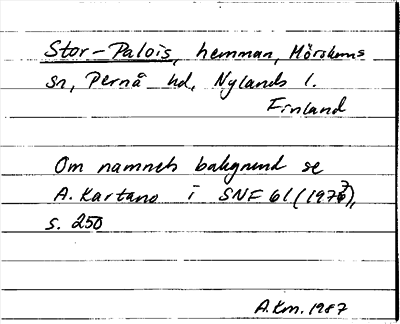 Stor-Palois, hemman, Mörskoms
sn, Pernå hd, Nylands l.
Finland
Om namnets bakgrund se
A. Kartano i SNF 61 (1973),
s. 250
A.Km. 1987